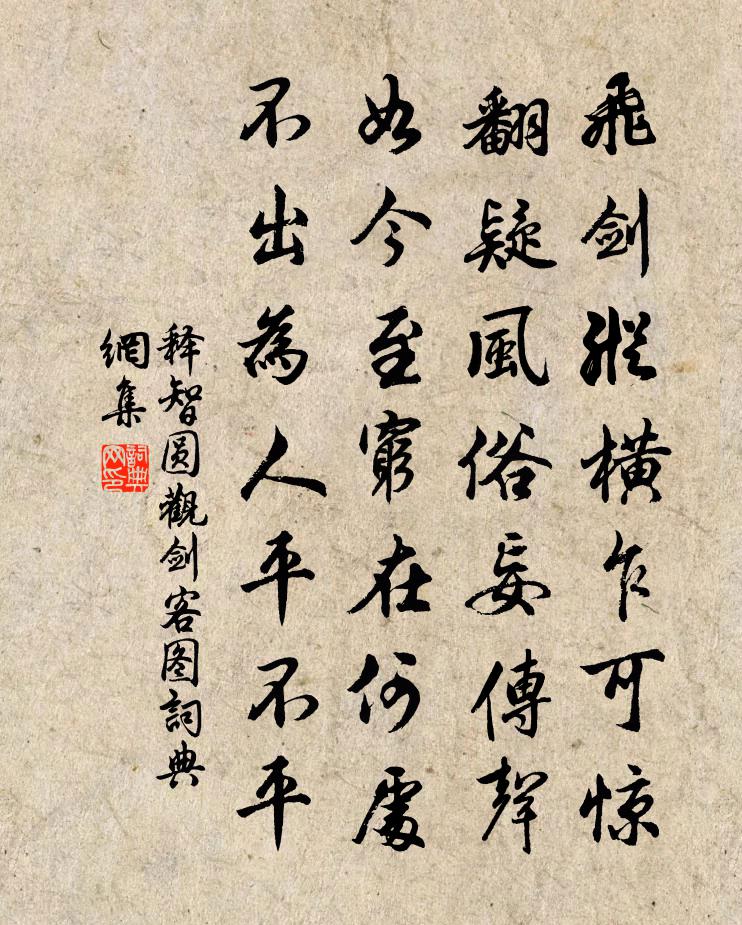 飛剑縱橫乍可惊
翻疑風俗妄傳聲
如今至窮在何處
不出為人平不平
释智圆觀剑客图詞典
網集
詞典網印